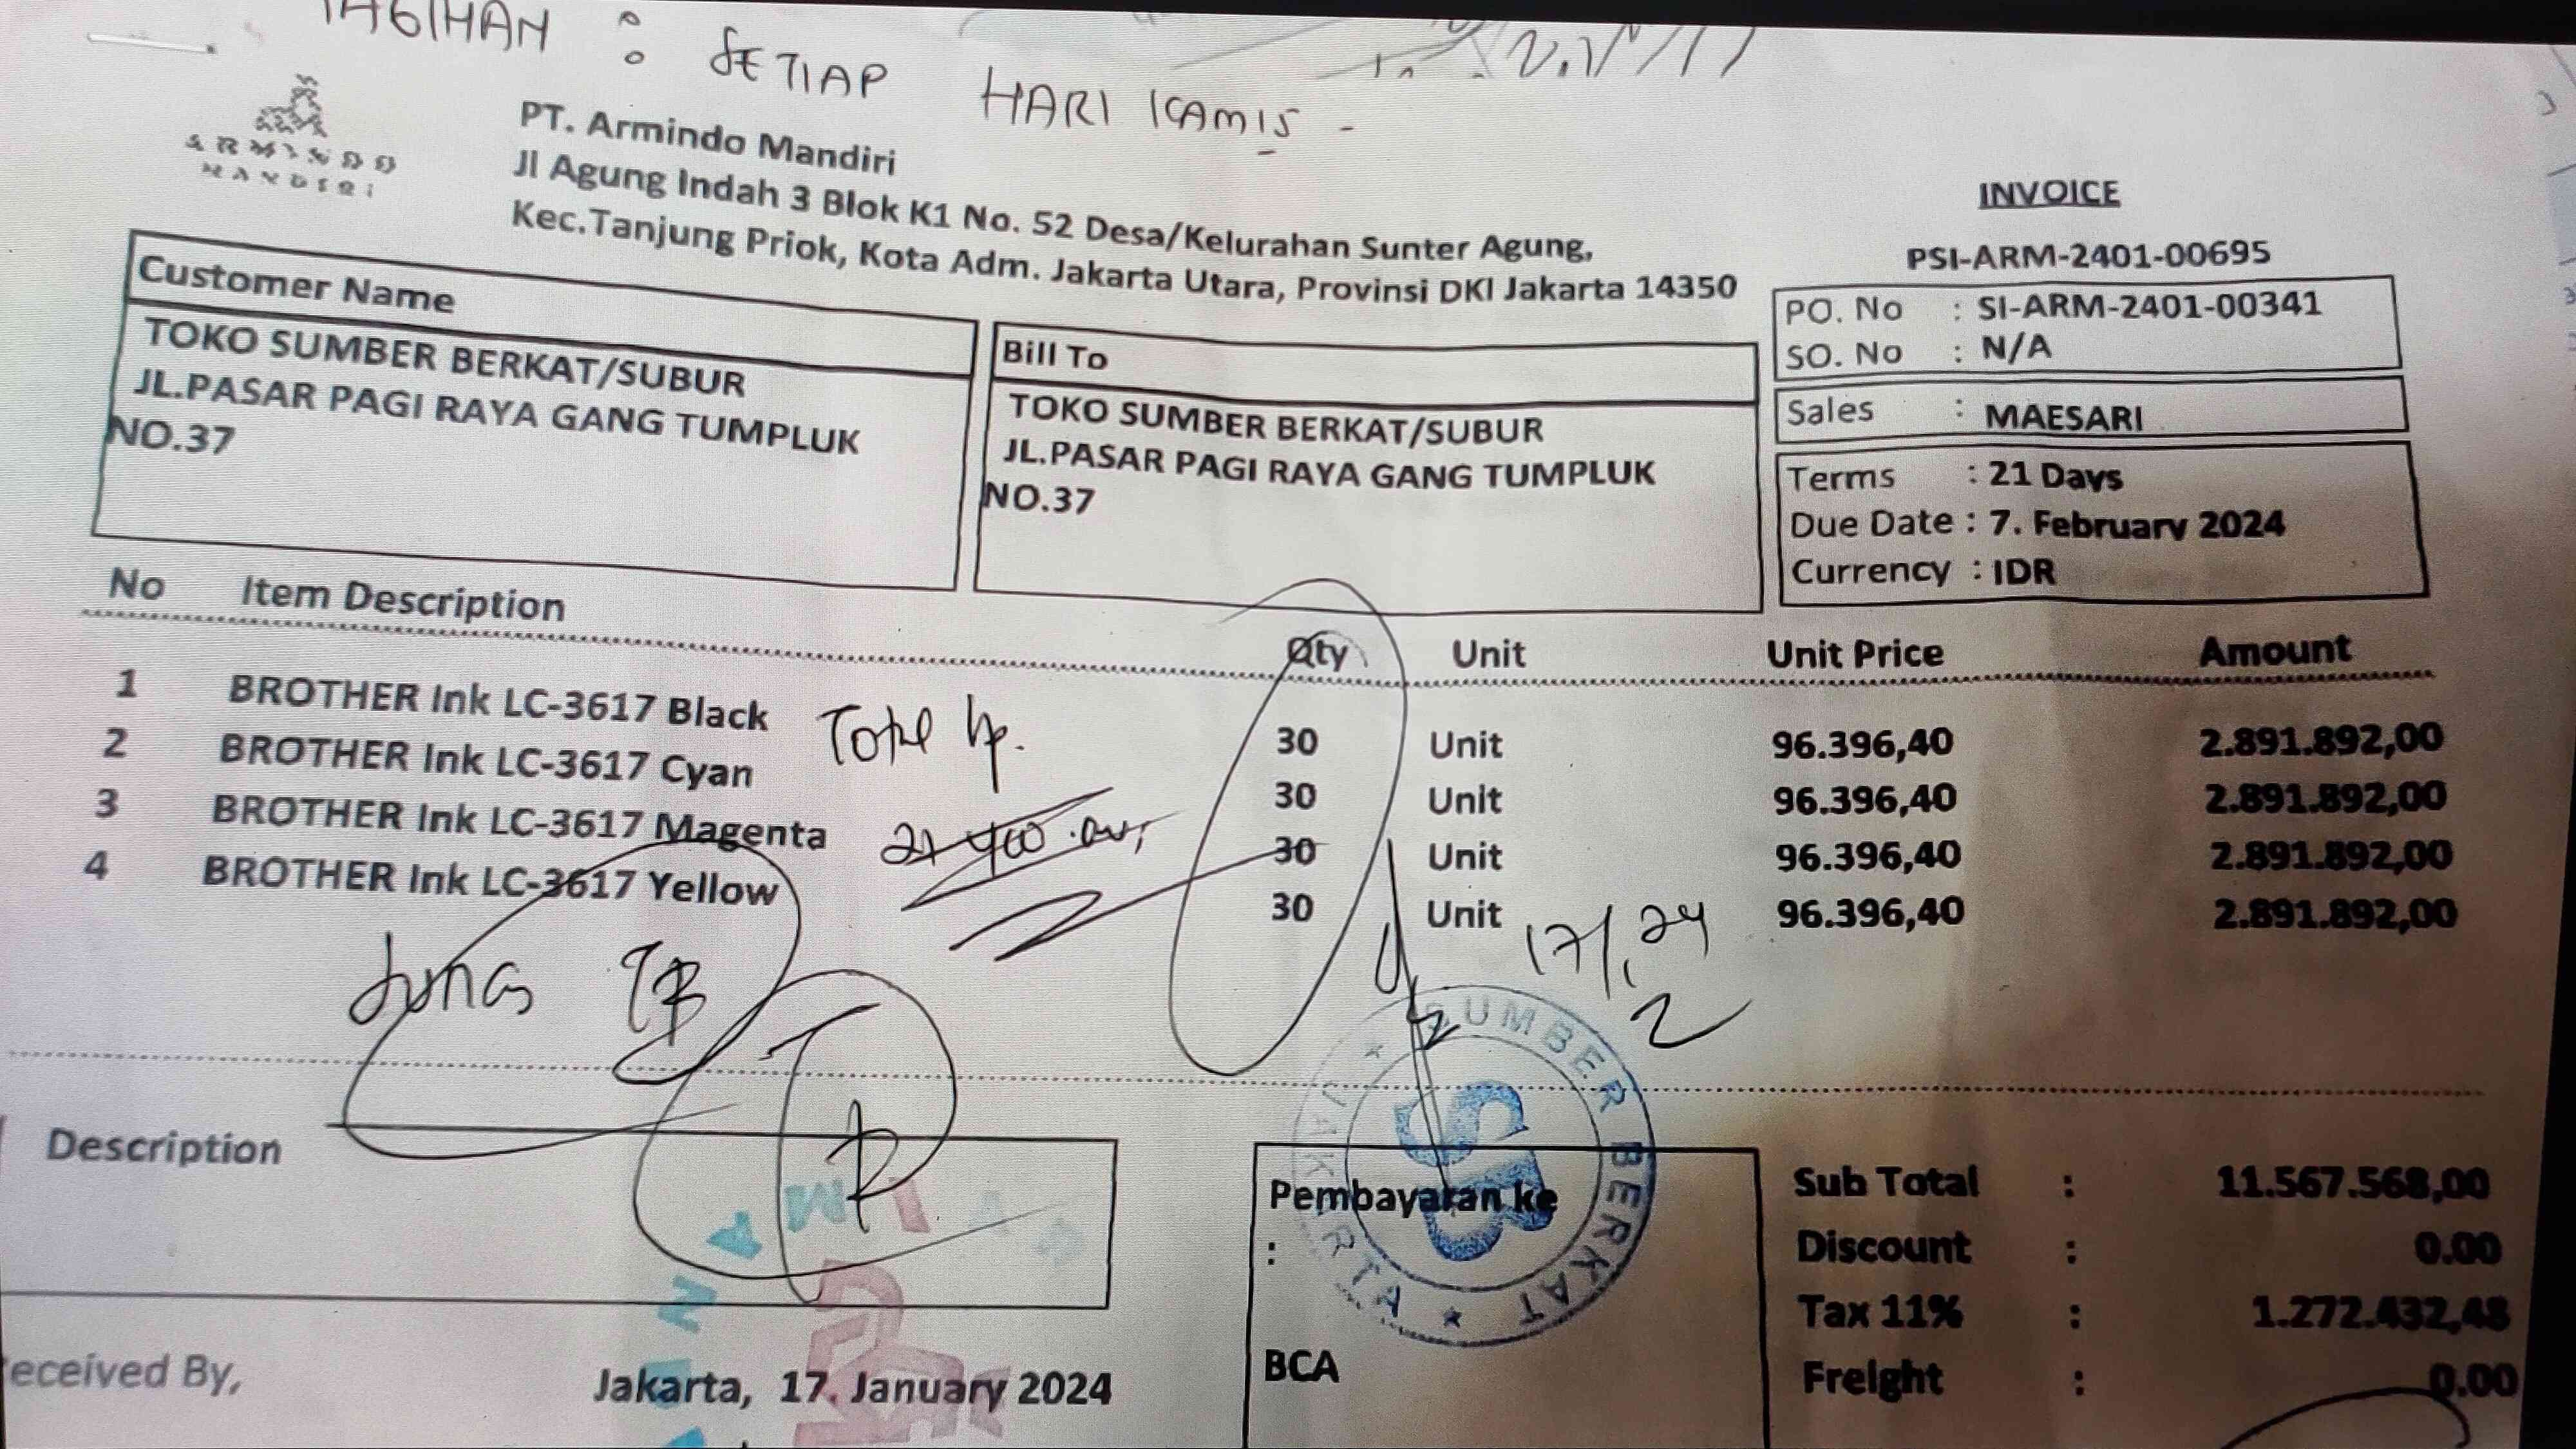 TAGIHAN : SETIAP HARI KAMIS -
ARMINDO
MANDIRI
PT. Armindo Mandiri
Jl Agung Indah 3 Blok K1 No. 52 Desa/Kelurahan Sunter Agung,
Kec.Tanjung Priok, Kota Adm. Jakarta Utara, Provinsi DKI Jakarta 14350
INVOICE
PSI-ARM-2401-00695
PO. No : SI-ARM-2401-00341
SO. No : N/A
Sales : MAESARI
Terms : 21 Days
Due Date : 7. February 2024
Currency : IDR
Customer Name
TOKO SUMBER BERKAT/SUBUR
JL.PASAR PAGI RAYA GANG TUMPLUK
NO.37
Bill To
TOKO SUMBER BERKAT/SUBUR
JL.PASAR PAGI RAYA GANG TUMPLUK
NO.37
No Item Description Qty Unit Unit Price Amount
1 BROTHER Ink LC-3617 Black 30 Unit 96.396,40 2.891.892,00
2 BROTHER Ink LC-3617 Cyan 30 Unit 96.396,40 2.891.892,00
3 BROTHER Ink LC-3617 Magenta 30 Unit 96.396,40 2.891.892,00
4 BROTHER Ink LC-3617 Yellow 30 Unit 96.396,40 2.891.892,00
17/1 24
SUMBER BERKAT
SB
JAKARTA
Description
Pembayaran ke
:
BCA
Sub Total : 11.567.568,00
Discount : 0.00
Tax 11% : 1.272.432,48
Freight : 0.00
eceived By,
Jakarta, 17. January 2024